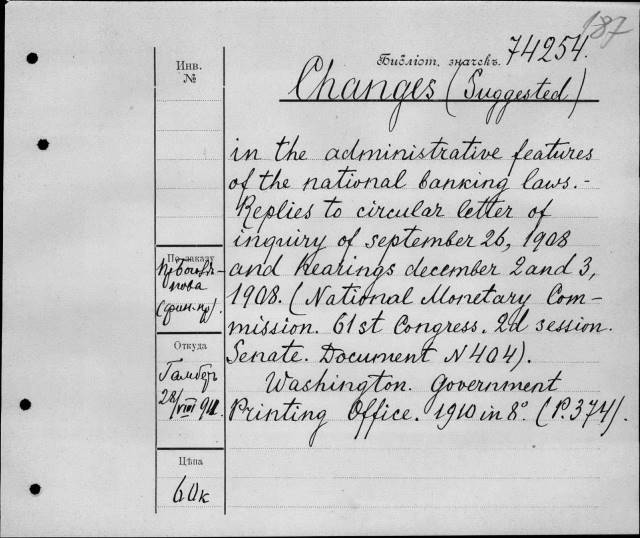 187
Библіот. значекъ. 74254.
Инв.
№
Changes (Suggested)
in the administrative features
of the national banking laws.-
Replies to circular letter of
inquiry of september 26, 1908
and hearings december 2 and 3,
1908. (National Monetary Com-
mission. 61st Congress. 2d session.
Senate. Document N 404).
Washington. Government
Printing Office. 1910 in 8°. (P. 374).
По заказу
(фин. пр).
Откуда
28/VIII 911.
Цѣна
60к